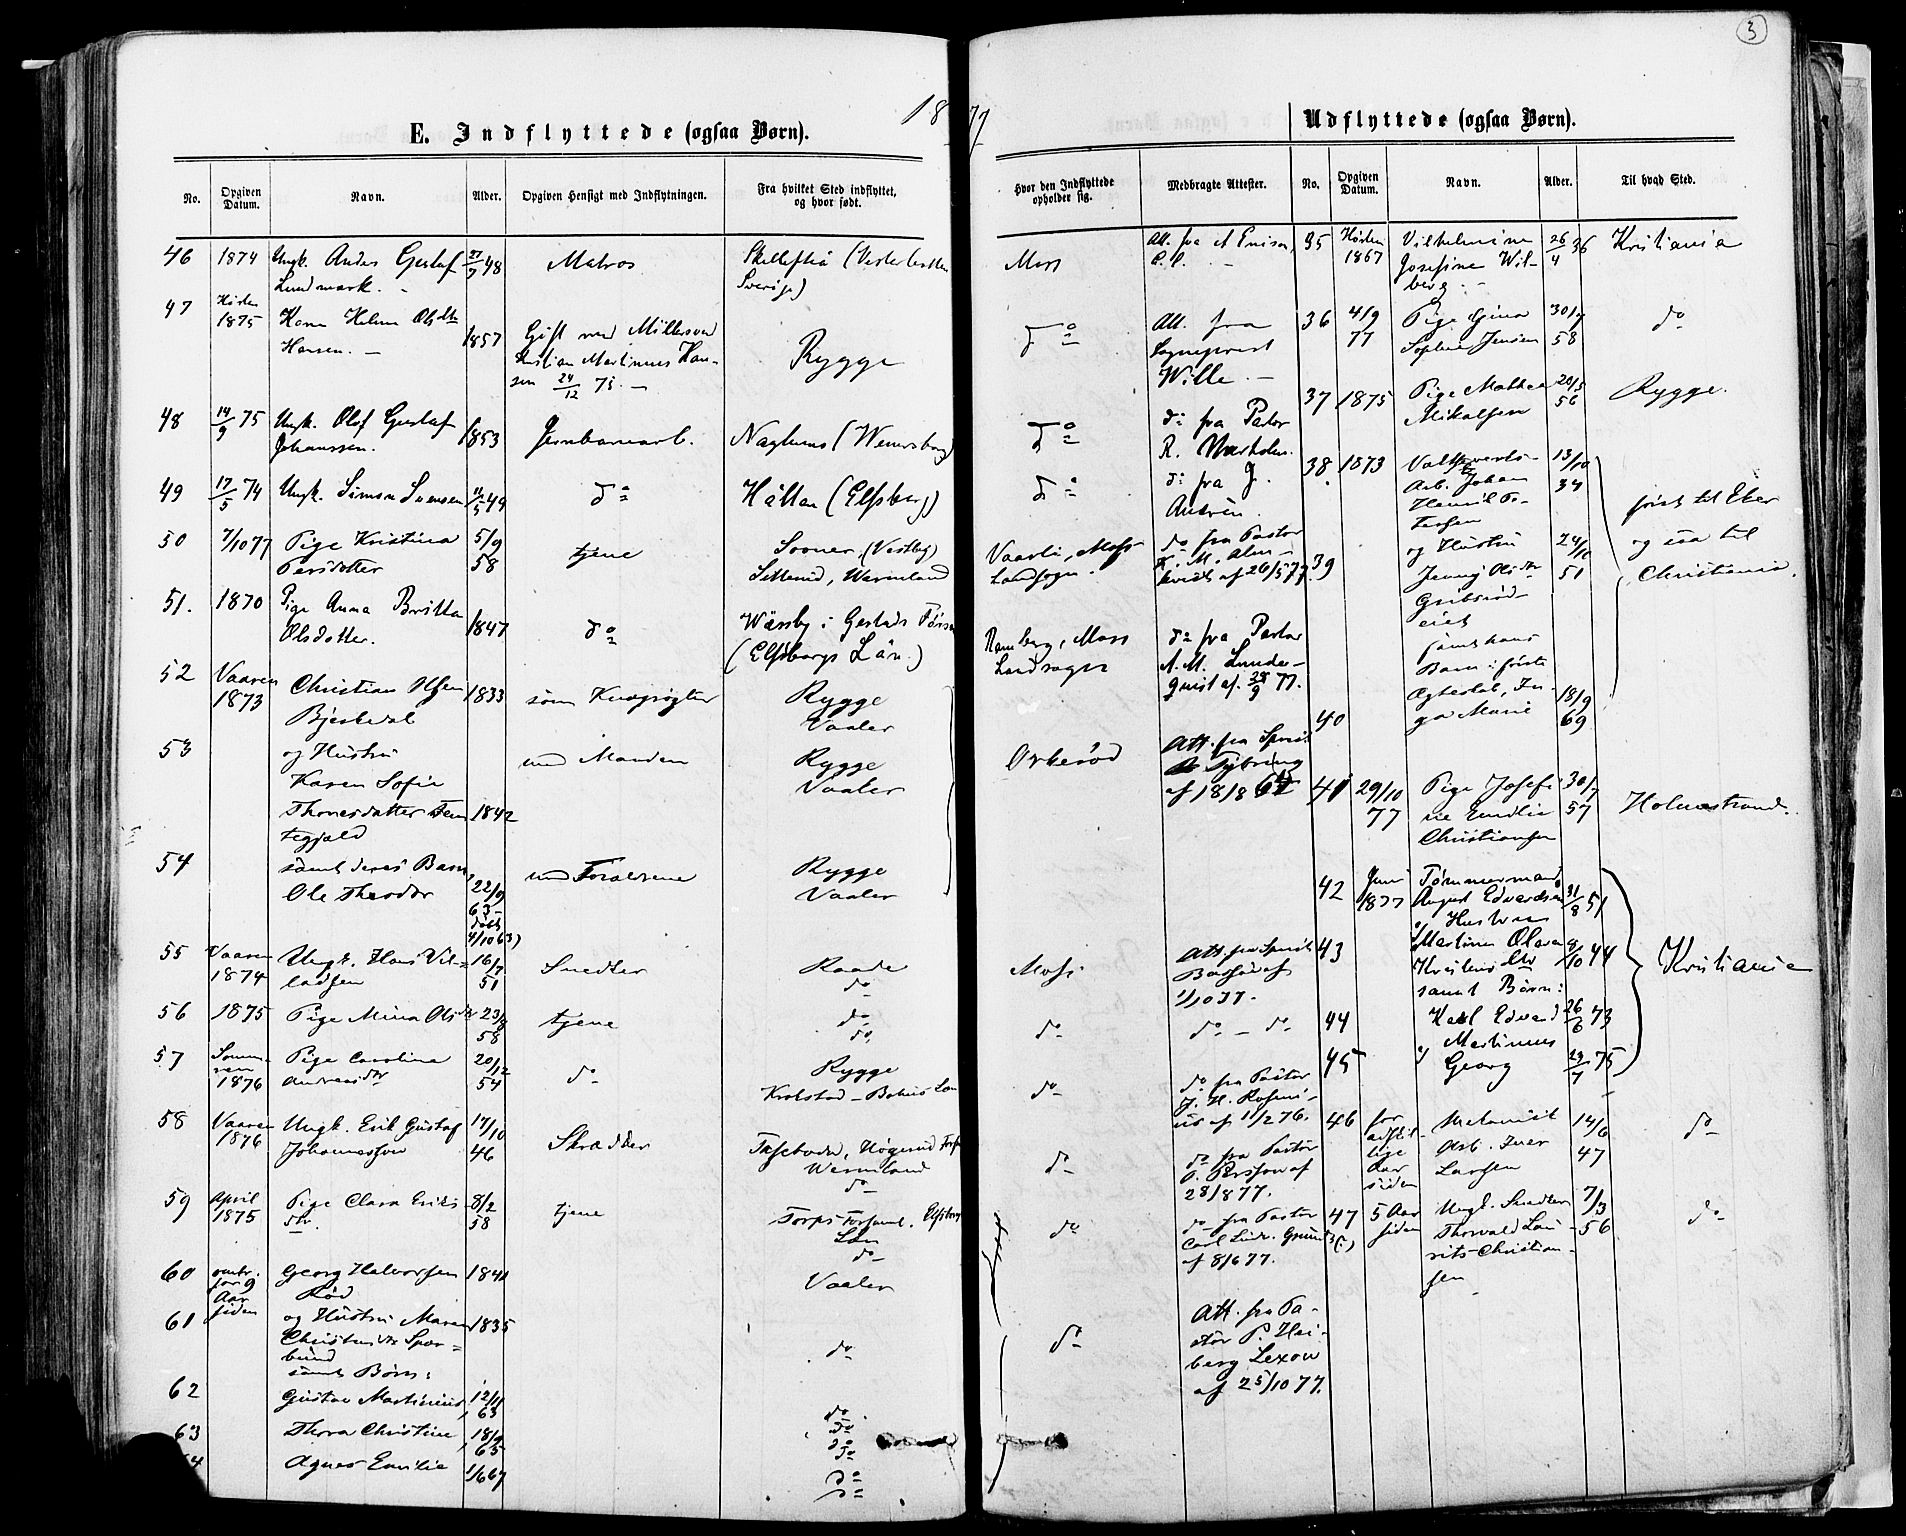 3
1877
E. Indflyttede (ogsaa Børn).
Udflyttede (ogsaa Børn).
No.
Opgiven Datum.
Navn.
Alder.
Opgiven Hensigt med Indflytningen.
Fra hvilket Sted indflyttet, og hvor født.
Hvor den Indflyttede opholder sig.
Medbragte Attester.
No.
Opgiven Datum.
Navn.
Alder.
Til hvad Sted.
46 1874 Ungk. Anders Gustaf 48 Matros Skellefteå Moss
Lundmark. Sverige)
47 Høsten 1875 Karen Helene Olsdtr 1857 Gift med Møllersvend Rygge do Att. fra
Hansen. Kristian Martinius Han- Sogneprest
sen 24/12 75. Wille.
48 14/9 75 Ungk. Olof Gustaf 1853 Jernbanearb. Naglums (Wenersborg) do do fra Pastor
Johanssen. R.
49 17/5 74 Ungk. Simon Svensen 49 do Håttan (Elfsborg) do do fra J.
50 7/10 77 Pige Kristina 5/9 58 tjene Sooner (Vestby) Vaarli, Moss do fra Pastor
Persdotter Wermland Landsogn. af 26/5 77.
51. 1870 Pige Anna Britta 1847 do i Gestads Ramberg, Moss do fra Pastor
Olsdotter. (Elfsborgs Län.) Landsogn A. M. Lunde-
qvist af 77.
52 Vaaren 1873 Christian Olsen 1833 som Kvægrøgter Rygge
Vaaler
53 og Hustru med Manden Rygge Orkerød Att. fra
Karen Sofie Vaaler Tybring
Thoresdatter 1842 af 18/8
54 samt deres Barn med Forældrene Rygge
Ole Theodor 22/9 63 døbt 4/10 63) Vaaler
55 Vaaren 1874 Ungk. Hans Vil- 16/7 51 Snedker Raade Moss Att. fra
ladsen do af 1/10 77.
56 1875 Pige Mina Olsdtr 58 tjene do do do - do
do
57 Sommeren 1876 Pige Carolina 20/12 54 do Rygge do do fra Pastor
Andreasdtr Krokstad - Bohus Län J. H.
af 11/2 76.
58 Vaaren 1876 Ungk. Erik Gustaf 17/10 46 Skrædder do do fra Pastor
Johannesson Wermland
do 28/8 77.
59 April 1875 Pige Clara Eriks- 8/2 58 tjene Torps Forsaml. Elfsborg do do fra Pastor
dtr. Län Carl
do af 8/6 77.
60 for 9 Aar siden Georg Halvorsen 1841 Vaaler
Rød
61 og Hustru Maren 1835 do do Att. fra Pa-
stor P. Hei-
samt Børn: berg Lexow
af 25/10 77.
62 Gustav Martinius 12/11 63 do
do
63 Thora Christine 65 do
do
Agnes Emilie 1/6 67 do
do
35 Høsten 1867 Vilhelmine 26/4 36 Kristiania
Josefine Wil-
berg.
36 4/9 77 Pige Gina 30/7 58 do
Sophie Jensen
37 1875 Pige Mathea 20/5 56 Rygge.
Mikalsen
38 1873 Arb. Johan 13/10 34 først til Eker
Henrik Pe-
tersen
39 og Hustru 24/10 51 og saa til
Jenny Olsdtr Christiania.
40 Barn i første
Ægteskab, In-
ga Marie 18/9 69
41 29/10 77 Pige Josefi- 30/7 57 Holmestrand.
ne Emilie
Christiansen
42 Juni 1877 Tømmermand
August Edvardsen 31/8 51
43 Hustru Kristiania
Martine Olava 8/10 44
samt Børn:
44 Karl Edvard 26/6 73
Martinius
45 Georg 23/7 75
46 for adskil- lige Aar siden 14/6 47 do
Arb. Iver
Larsen
47 5 Aar siden Ungk. Snedker 7/3 56 do
Thorvald Lau-
rits Christian-
sen